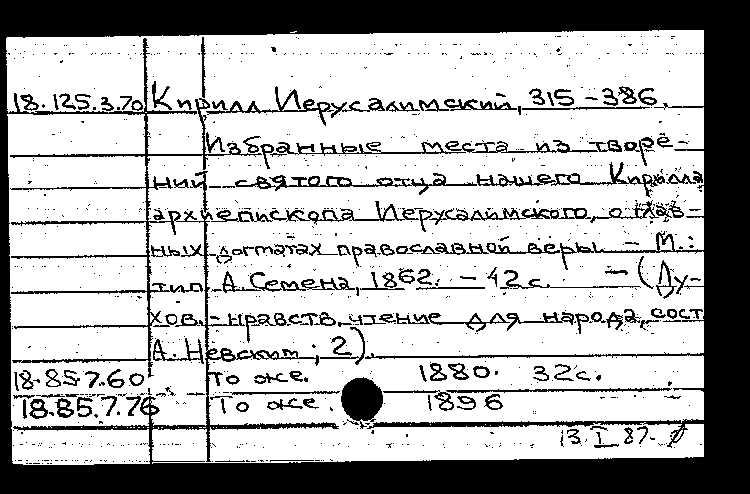 18.125.3.70 Кирилл Иерусалимский, 315-386.
Избранные места из творе-
ний святого отца нашего Кирилла
архиепископа Иерусалимского, о глав-
ных догматах православной веры. - М.:
тип. А. Семена, 1862. - 42 с. - (Ду-
хов.-нравств. чтение для народа, сост.
А. Невским; 2).
18.85.7.60 То же. 1880. 32 с.
18.85.7.76 То же. 1896
13.I.87.